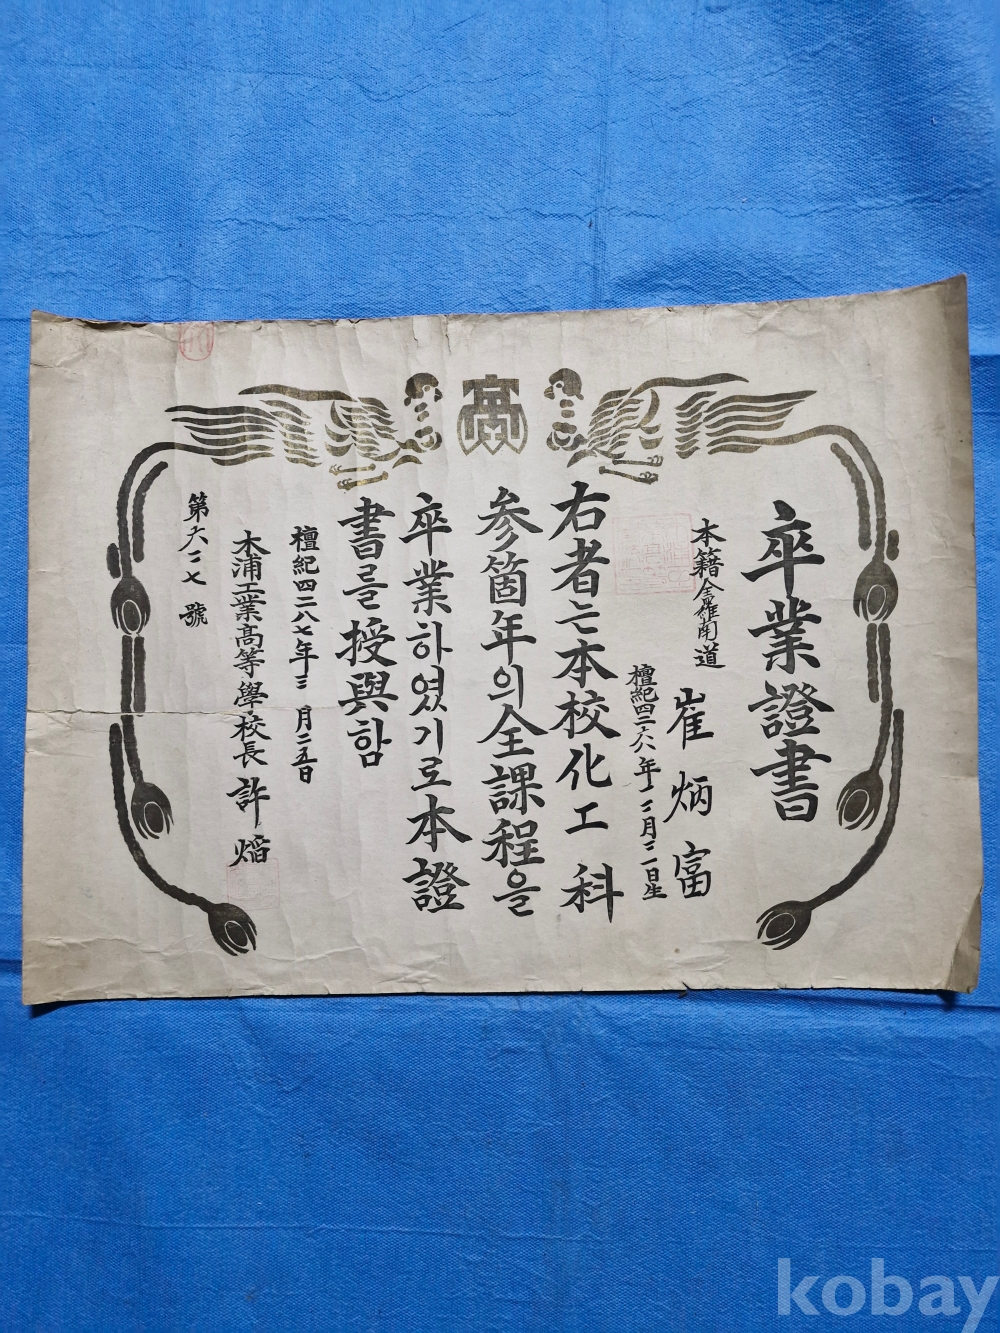 卒業證書
本籍全羅南道
崔炳富
檀紀四二六八年一二月二一日生
右者는本校化工科
參箇年의全課程을
卒業하였기로本證
書를授與함
檀紀四二八七年三月二五日
木浦工業高等學校長 許焰
第六二七 號
高
kobay